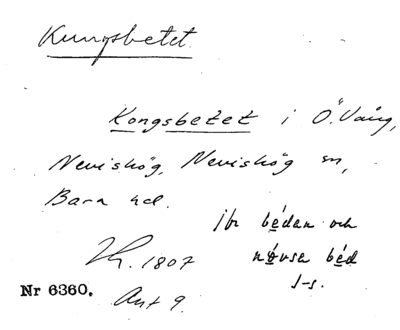 Kungsbetet.
Kongsbetet i Ö. Vång,
Nevishög, Nevishög sn,
Bara hd.
jfr bédan och
nóvsa béd
s-s.
Lh. 1807
Nr 6360. Akt 9.